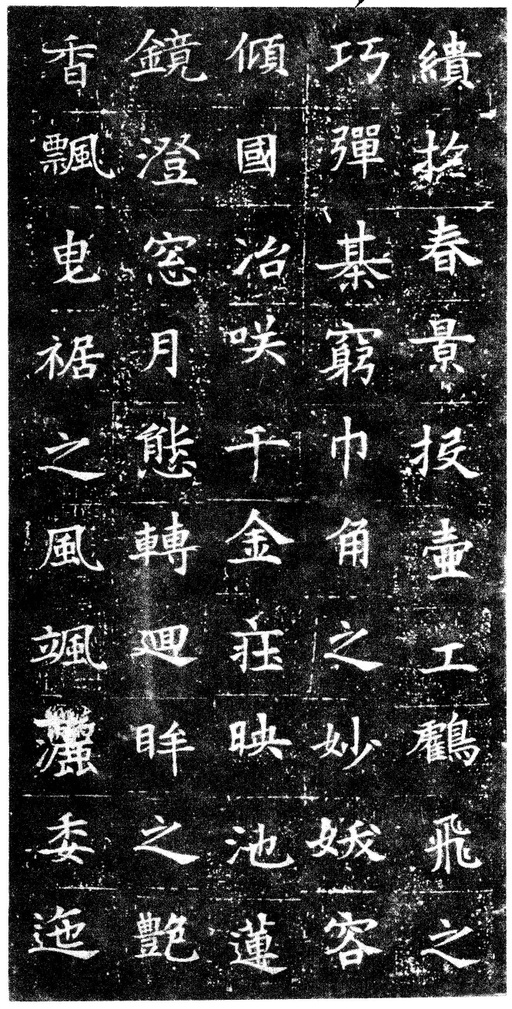 繢扵春景投壺工鸖飛之
巧彈棊窮巾角之妙妖容
傾國冶咲千金莊映池蓮
鏡澄窓月態轉廻眸之艷
香飄曳裾之風颯灑委迤